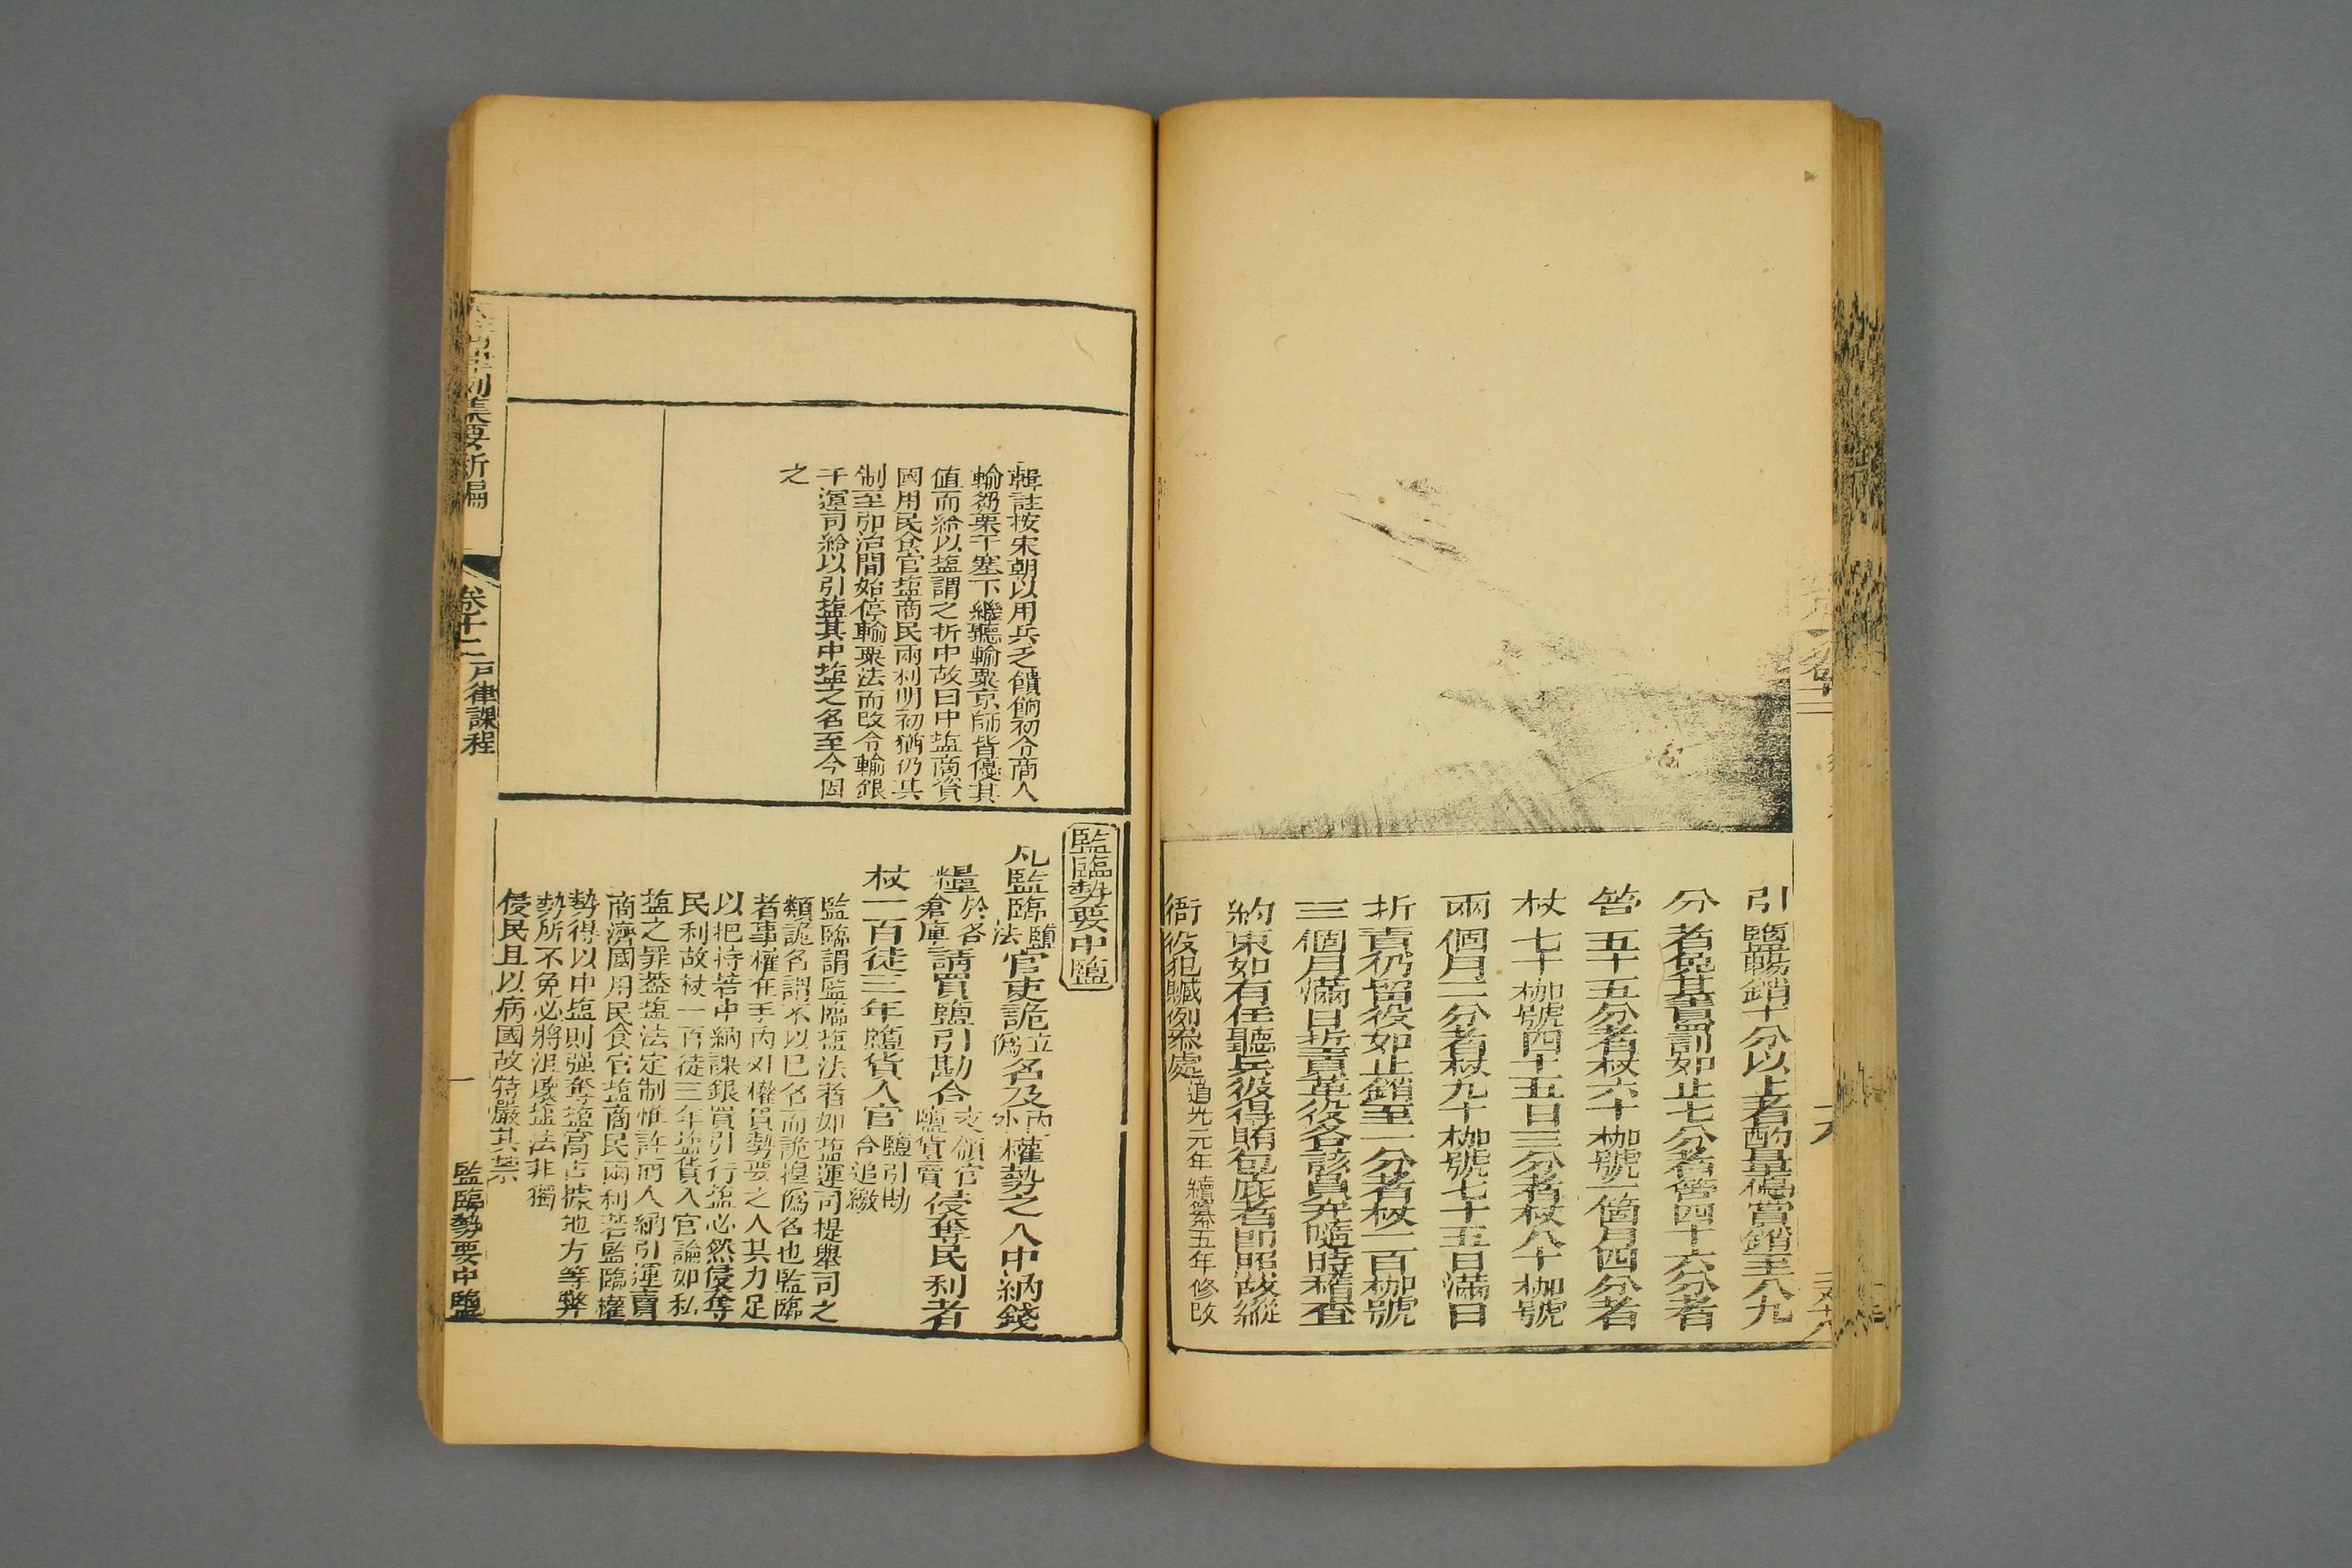 引鹽暢銷十分以上者酌量犒賞銷至八九
分者免其責罰如止七分者笞四十六分者
笞五十五分者杖六十枷號一箇月四分者
杖七十枷號四十五日三分者杖八十枷號
兩個月二分者杖九十枷號七十五日滿日
折責仍留役如止銷至一分者杖一百枷號
三個月滿日折責革役各該員弁隨時稽查
約束如有任聽兵役得賄包庇者即照故縱
衙役犯贓例叅處道光元年續纂五年修改
輯註按宋朝以用兵乏饋餉初令商人
輸芻粟于塞下繼聽輸粟京師皆優其
值而給以塩謂之折中故曰中塩商資
國用民食官塩商民兩利明初猶仍其
制至弘治間始停輸粟法而改令輸銀
于運司給以引塩其中塩之名至今因
之
監臨勢要中鹽
凡監臨鹽法官吏詭立偽名及內外權勢之人中納錢
糧於各倉庫請買鹽引勘合支領官鹽貨賣侵奪民利者
杖一百徒三年鹽貨入官鹽引勘合追繳
監臨謂監臨塩法者如塩運司提舉司之
類詭名謂不以已名而詭揑偽名也監臨
者事權在手內外權貴勢要之人其力足
以把持若中納課銀買引行塩必然侵奪
民利故杖一百徒三年塩貨入官論如私
塩之罪葢塩法定制惟許商人納引運賣
商濟國用民食官塩商民兩利若監臨權
勢得以中塩則强奪塩窩占據地方等弊
勢所不免必將沮廢塩法非獨
侵民且以病國故特嚴其禁
律例集要新編
卷十二
戶律課程
一
監臨勢要中鹽